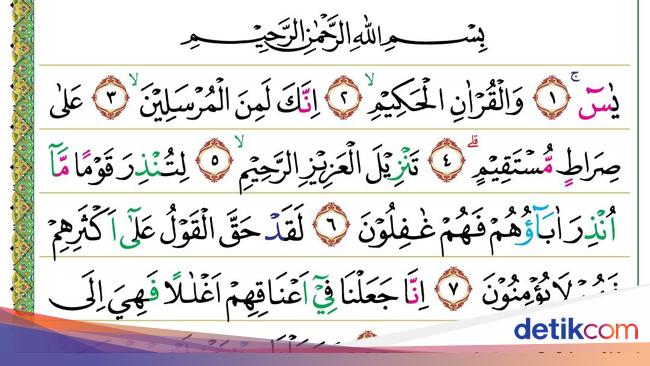 بِسْمِ اللّٰهِ الرَّحْمٰنِ الرَّحِيْمِ
يٰسۤ ۚ ١ وَالْقُرْاٰنِ الْحَكِيْمِۙ ٢ اِنَّكَ لَمِنَ الْمُرْسَلِيْنَۙ ٣ عَلٰى
صِرَاطٍ مُّسْتَقِيْمٍۗ ٤ تَنْزِيْلَ الْعَزِيْزِ الرَّحِيْمِۙ ٥ لِتُنْذِرَ قَوْمًا مَّآ
اُنْذِرَ اٰبَاۤؤُهُمْ فَهُمْ غٰفِلُوْنَ ٦ لَقَدْ حَقَّ الْقَوْلُ عَلٰٓى اَكْثَرِهِمْ
فَهُمْ لَا يُؤْمِنُوْنَ ٧ اِنَّا جَعَلْنَا فِيْٓ اَعْنَاقِهِمْ اَغْلٰلًا فَهِيَ اِلَى
detikcom